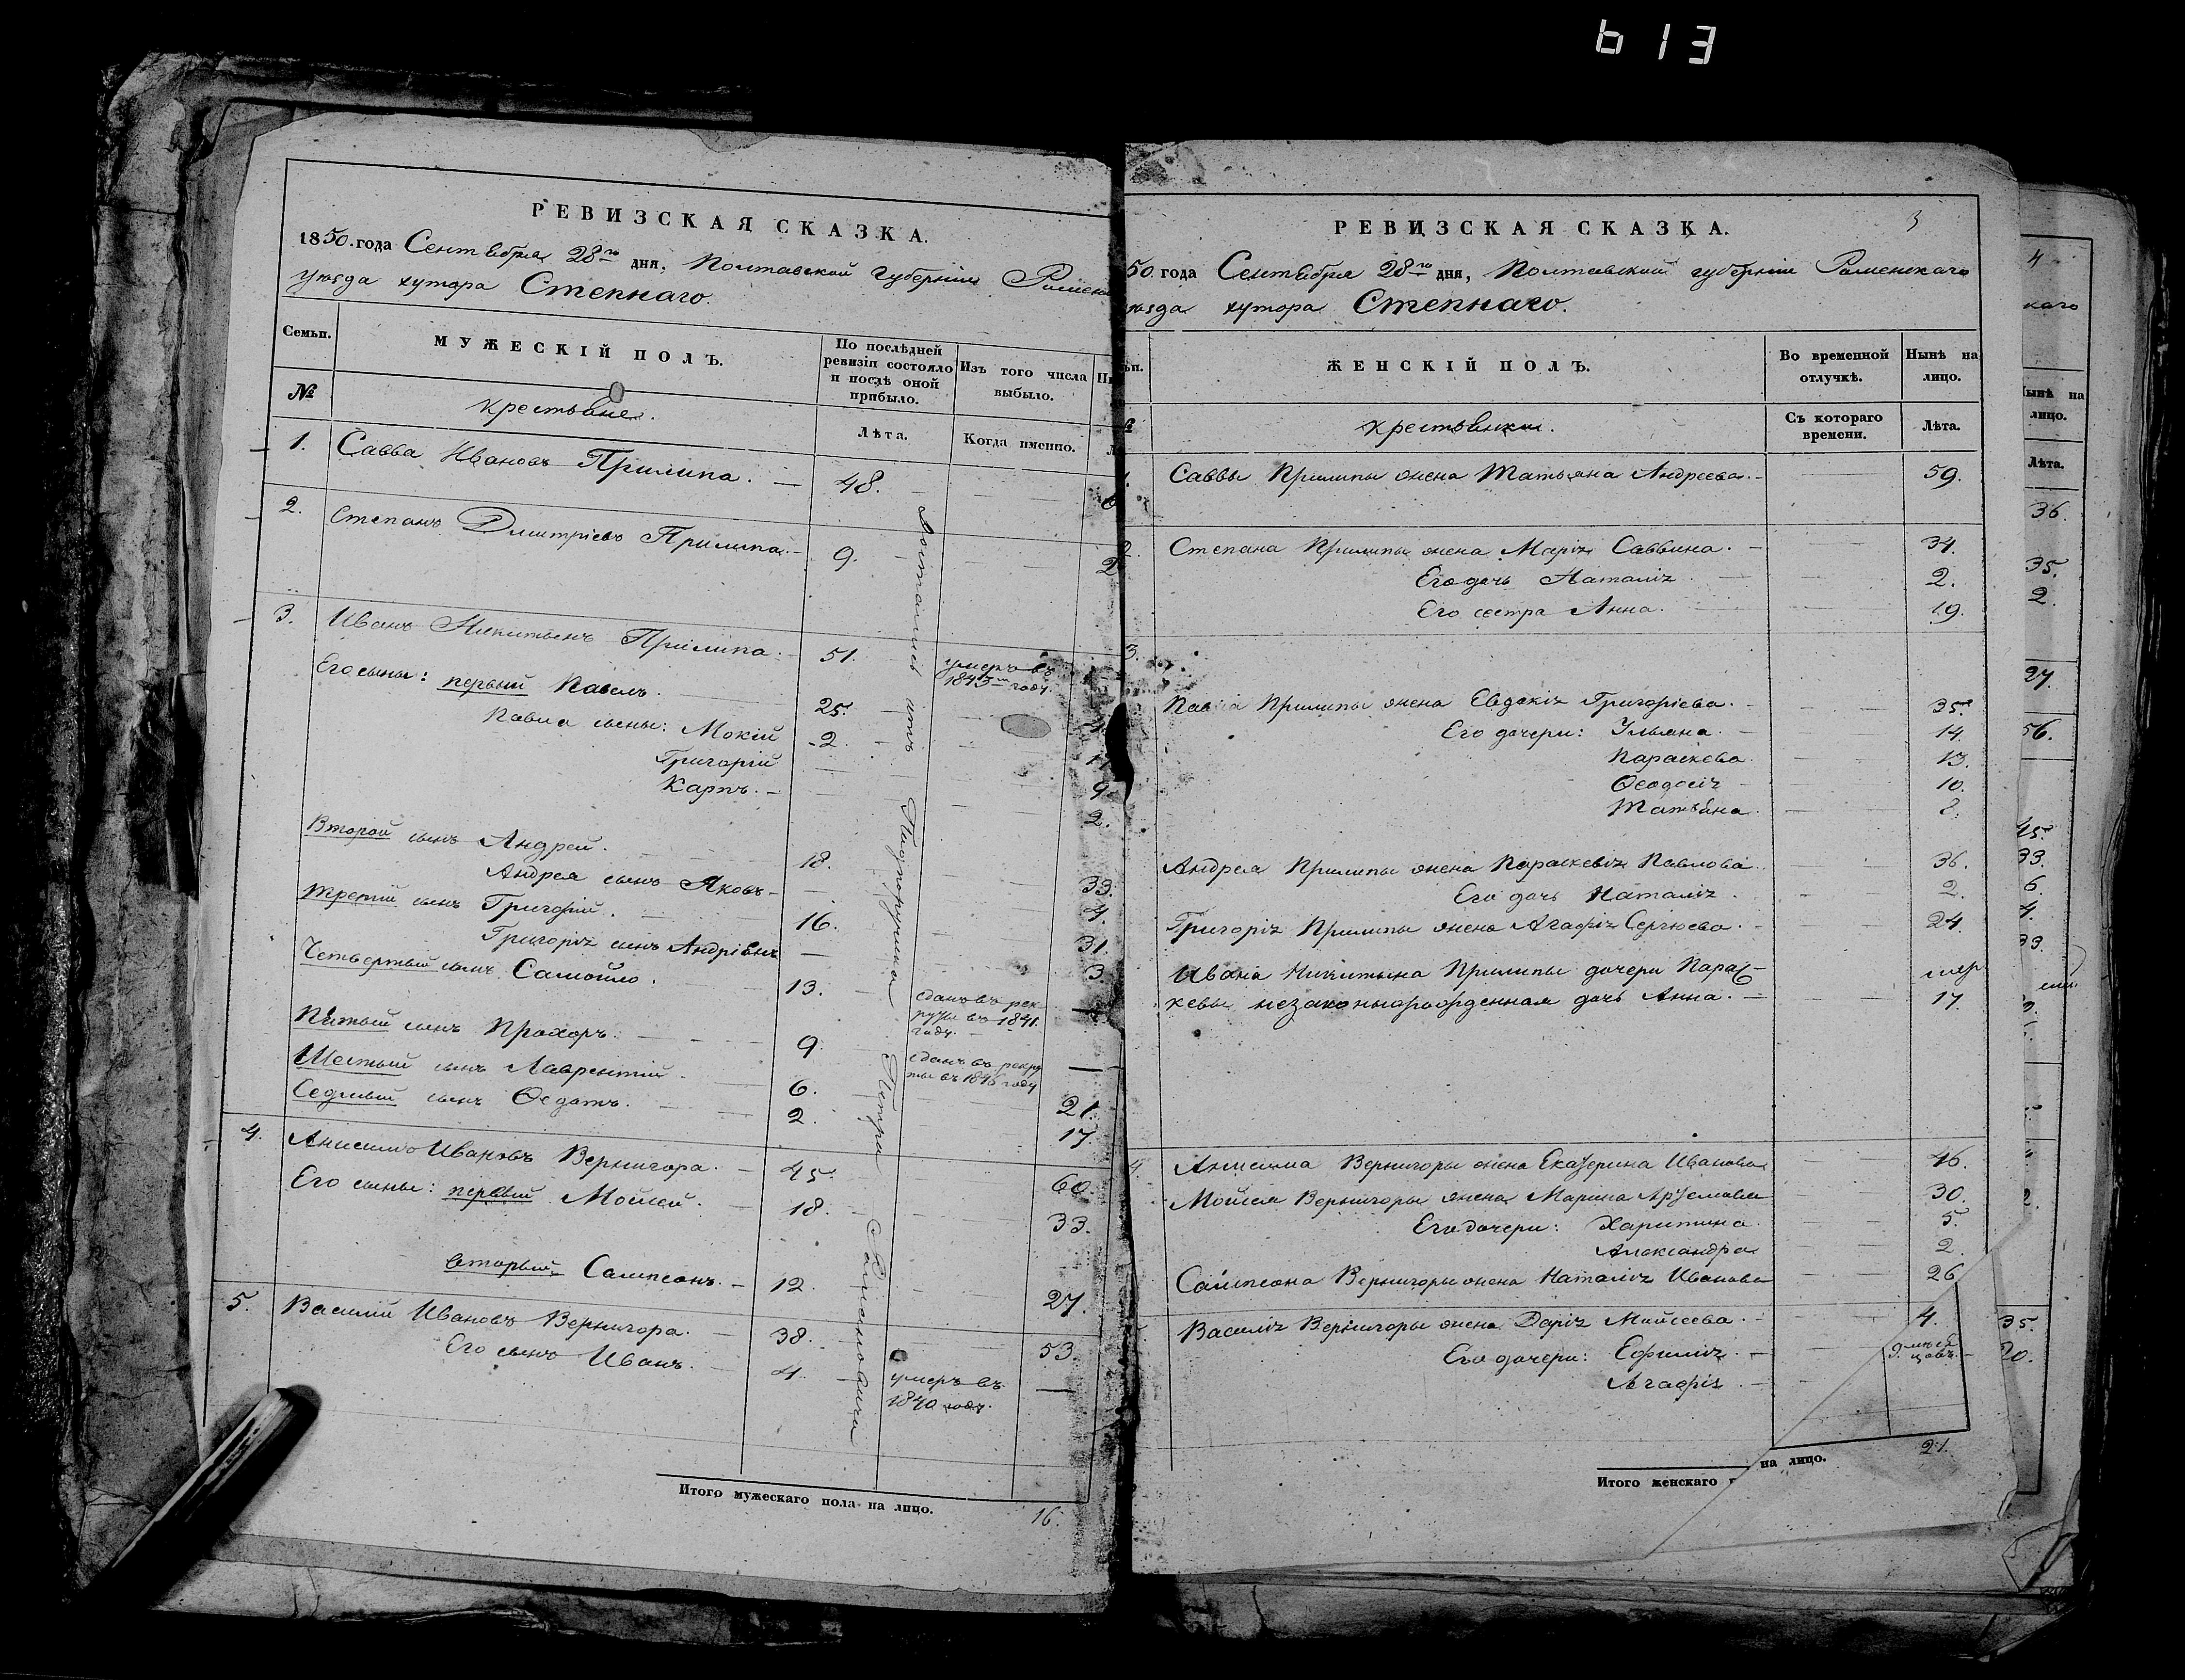 613
РЕВИЗСКАЯ СКАЗКА.
1850. года Сентября 28го дня, Полтавской губерніи Ромен
уѣзда хутора Степнаго.
Семьи.
МУЖЕСКІЙ ПОЛЪ.
По послѣдней ревизіи состояло и послѣ оной прибыло.
Изъ того числа выбыло.
№
крестьяне.
Лѣта.
Когда именно.
1. Савва Ивановъ Прилипа. 48.
2. Степанъ Дмитріевъ Прилипа. 9. 2
3. Иванъ Никитинъ Прилипа. 51. умеръ въ 1843м году.
Его сыны: первый Павелъ. 25.
Павла сыны: Мокій 2.
Григорій 11
Карпъ. 9.
2.
Второй сынъ Андрей. 18.
Андрея сынъ Яковъ 33.
Третій сынъ Григорій. 16. 4.
Григорія сынъ Андріянъ 31.
Четвертый сынъ Самойло. 13. 3
сданъ въ рекруты въ 1841. году.
Пятый сынъ Прохоръ. 9. сданъ въ рекруты въ 1846 году
Шестый сынъ Лаврентій. 6. 21.
Седмый сынъ Ѳедотъ. 2. 17.
4. Анисимъ Ивановъ Вернигора. 45. 60.
Его сыны: первый Мойсей. 18. 33.
вторый Сампсонъ. 12. 27.
5. Василій Ивановъ Вернигора. 38. 53.
Его сынъ Иванъ. 4. умеръ въ 1840 году.
Итого мужескаго пола на лицо. 16.
3
РЕВИЗСКАЯ СКАЗКА.
50. года Сентября 28го дня, Полтавской губерніи Роменскаго
уѣзда хутора Степнаго.
ЖЕНСКІЙ ПОЛЪ.
Во временной отлучкѣ.
Нынѣ на лицо.
крестьянки.
Съ котораго времени.
Лѣта.
1. Саввы Прилипы жена Татьяна Андреева. 59.
2. Степана Прилипы жена Марія Саввина. 34.
Его дочь Наталія 2.
Его сестра Анна. 19.
3.
Павла Прилипы жена Евдокія Григоріева. 35.
Его дочери: Ульяна. 14.
Параскева 13.
Ѳеодосія 10.
Татьяна
Андрея Прилипы жена Параскевія Павлова 36.
Его дочь Наталія. 2.
Григорія Прилипы жена Агафія Сергіева. 24.
Ивана Никитина Прилипы дочери Парас-
кевы незаконнорожденная дочь Анна. 17.
4. Анисима Вернигоры жена Екатерина Иванова 46.
Мойсея Вернигоры жена Марина Артемова 30.
Его дочери: Харитина. 5.
Александра 2.
Сампсона Вернигоры жена Наталія Иванова 26
Василія Вернигоры жена Дарія Мойсеева. 4.
Его дочери: Ефимія. 9. мѣсяцовъ.
Агафія
21.
на лицо.
Итого женскаго
4
каго
Нынѣ на лицо.
Лѣта.
36.
35.
2.
27.
56.
45.
33.
6.
4.
33.
35.
20.